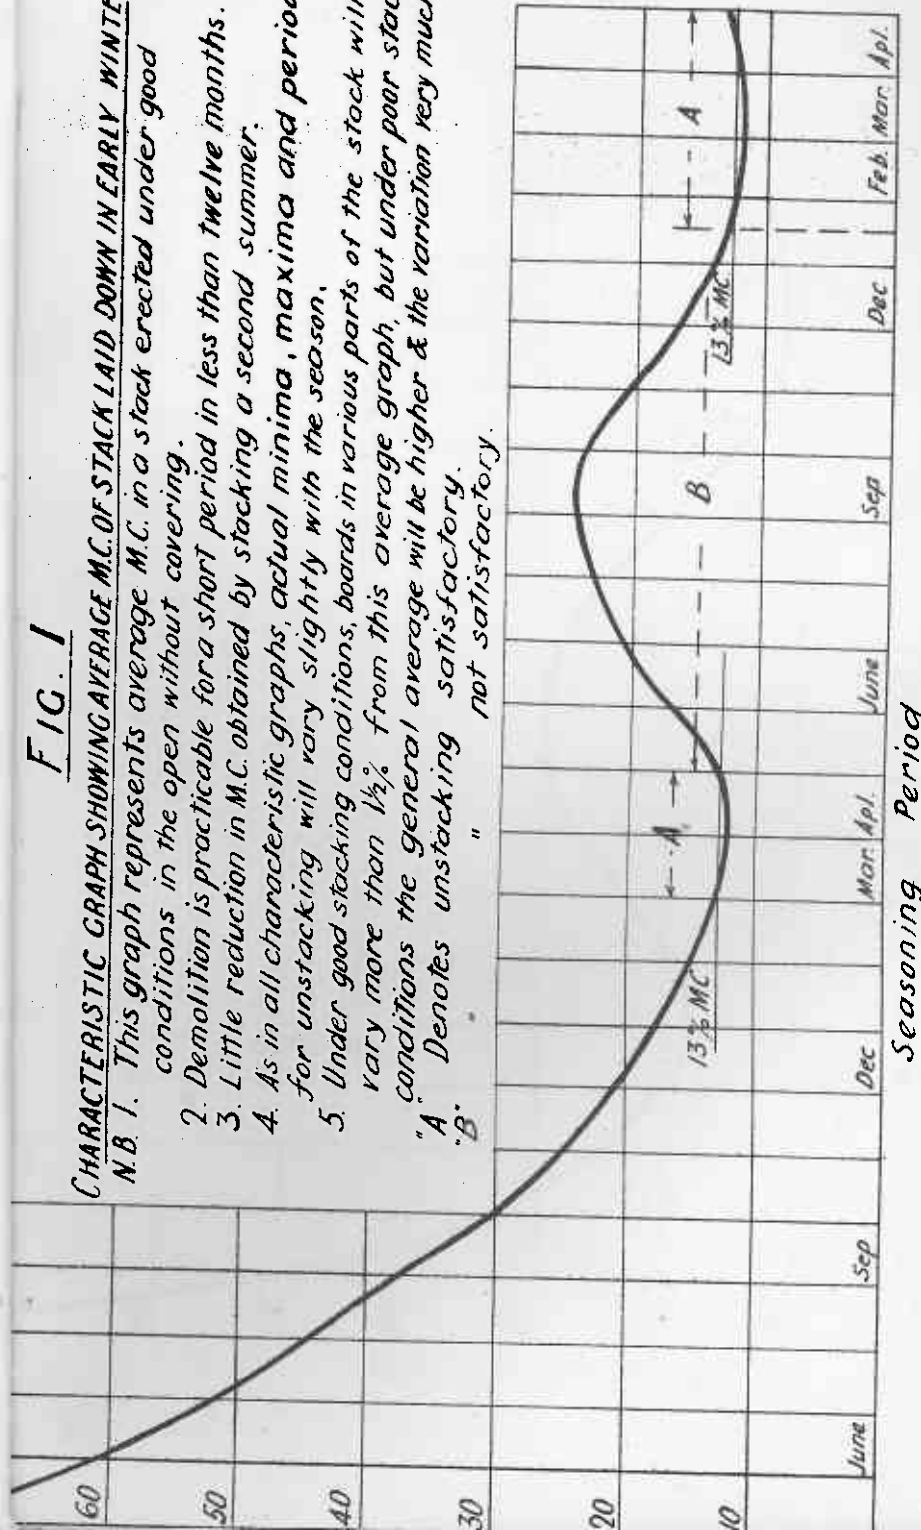 FIG. 1
CHARACTERISTIC GRAPH SHOWING AVERAGE M.C. OF STACK LAID DOWN IN EARLY WINTE
N.B. 1. This graph represents average M.C. in a stack erected under good
conditions in the open without covering.
2. Demolition is practicable for a short period in less than twelve months.
3. Little reduction in M.C. obtained by stacking a second summer.
4. As in all characteristic graphs, actual minima, maxima and period
for unstacking will vary slightly with the season.
5. Under good stacking conditions, boards in various parts of the stack will
vary more than 1½% from this average graph, but under poor stac
conditions the general average will be higher & the variation very much
"A" Denotes unstacking satisfactory.
"B" " " not satisfactory.
60
50
40
30
20
10
13% MC
A
B
13% MC
A
June
Sep
Dec
Mar.
Apl.
June
Sep
Dec
Feb.
Mar.
Apl.
Seasoning Period